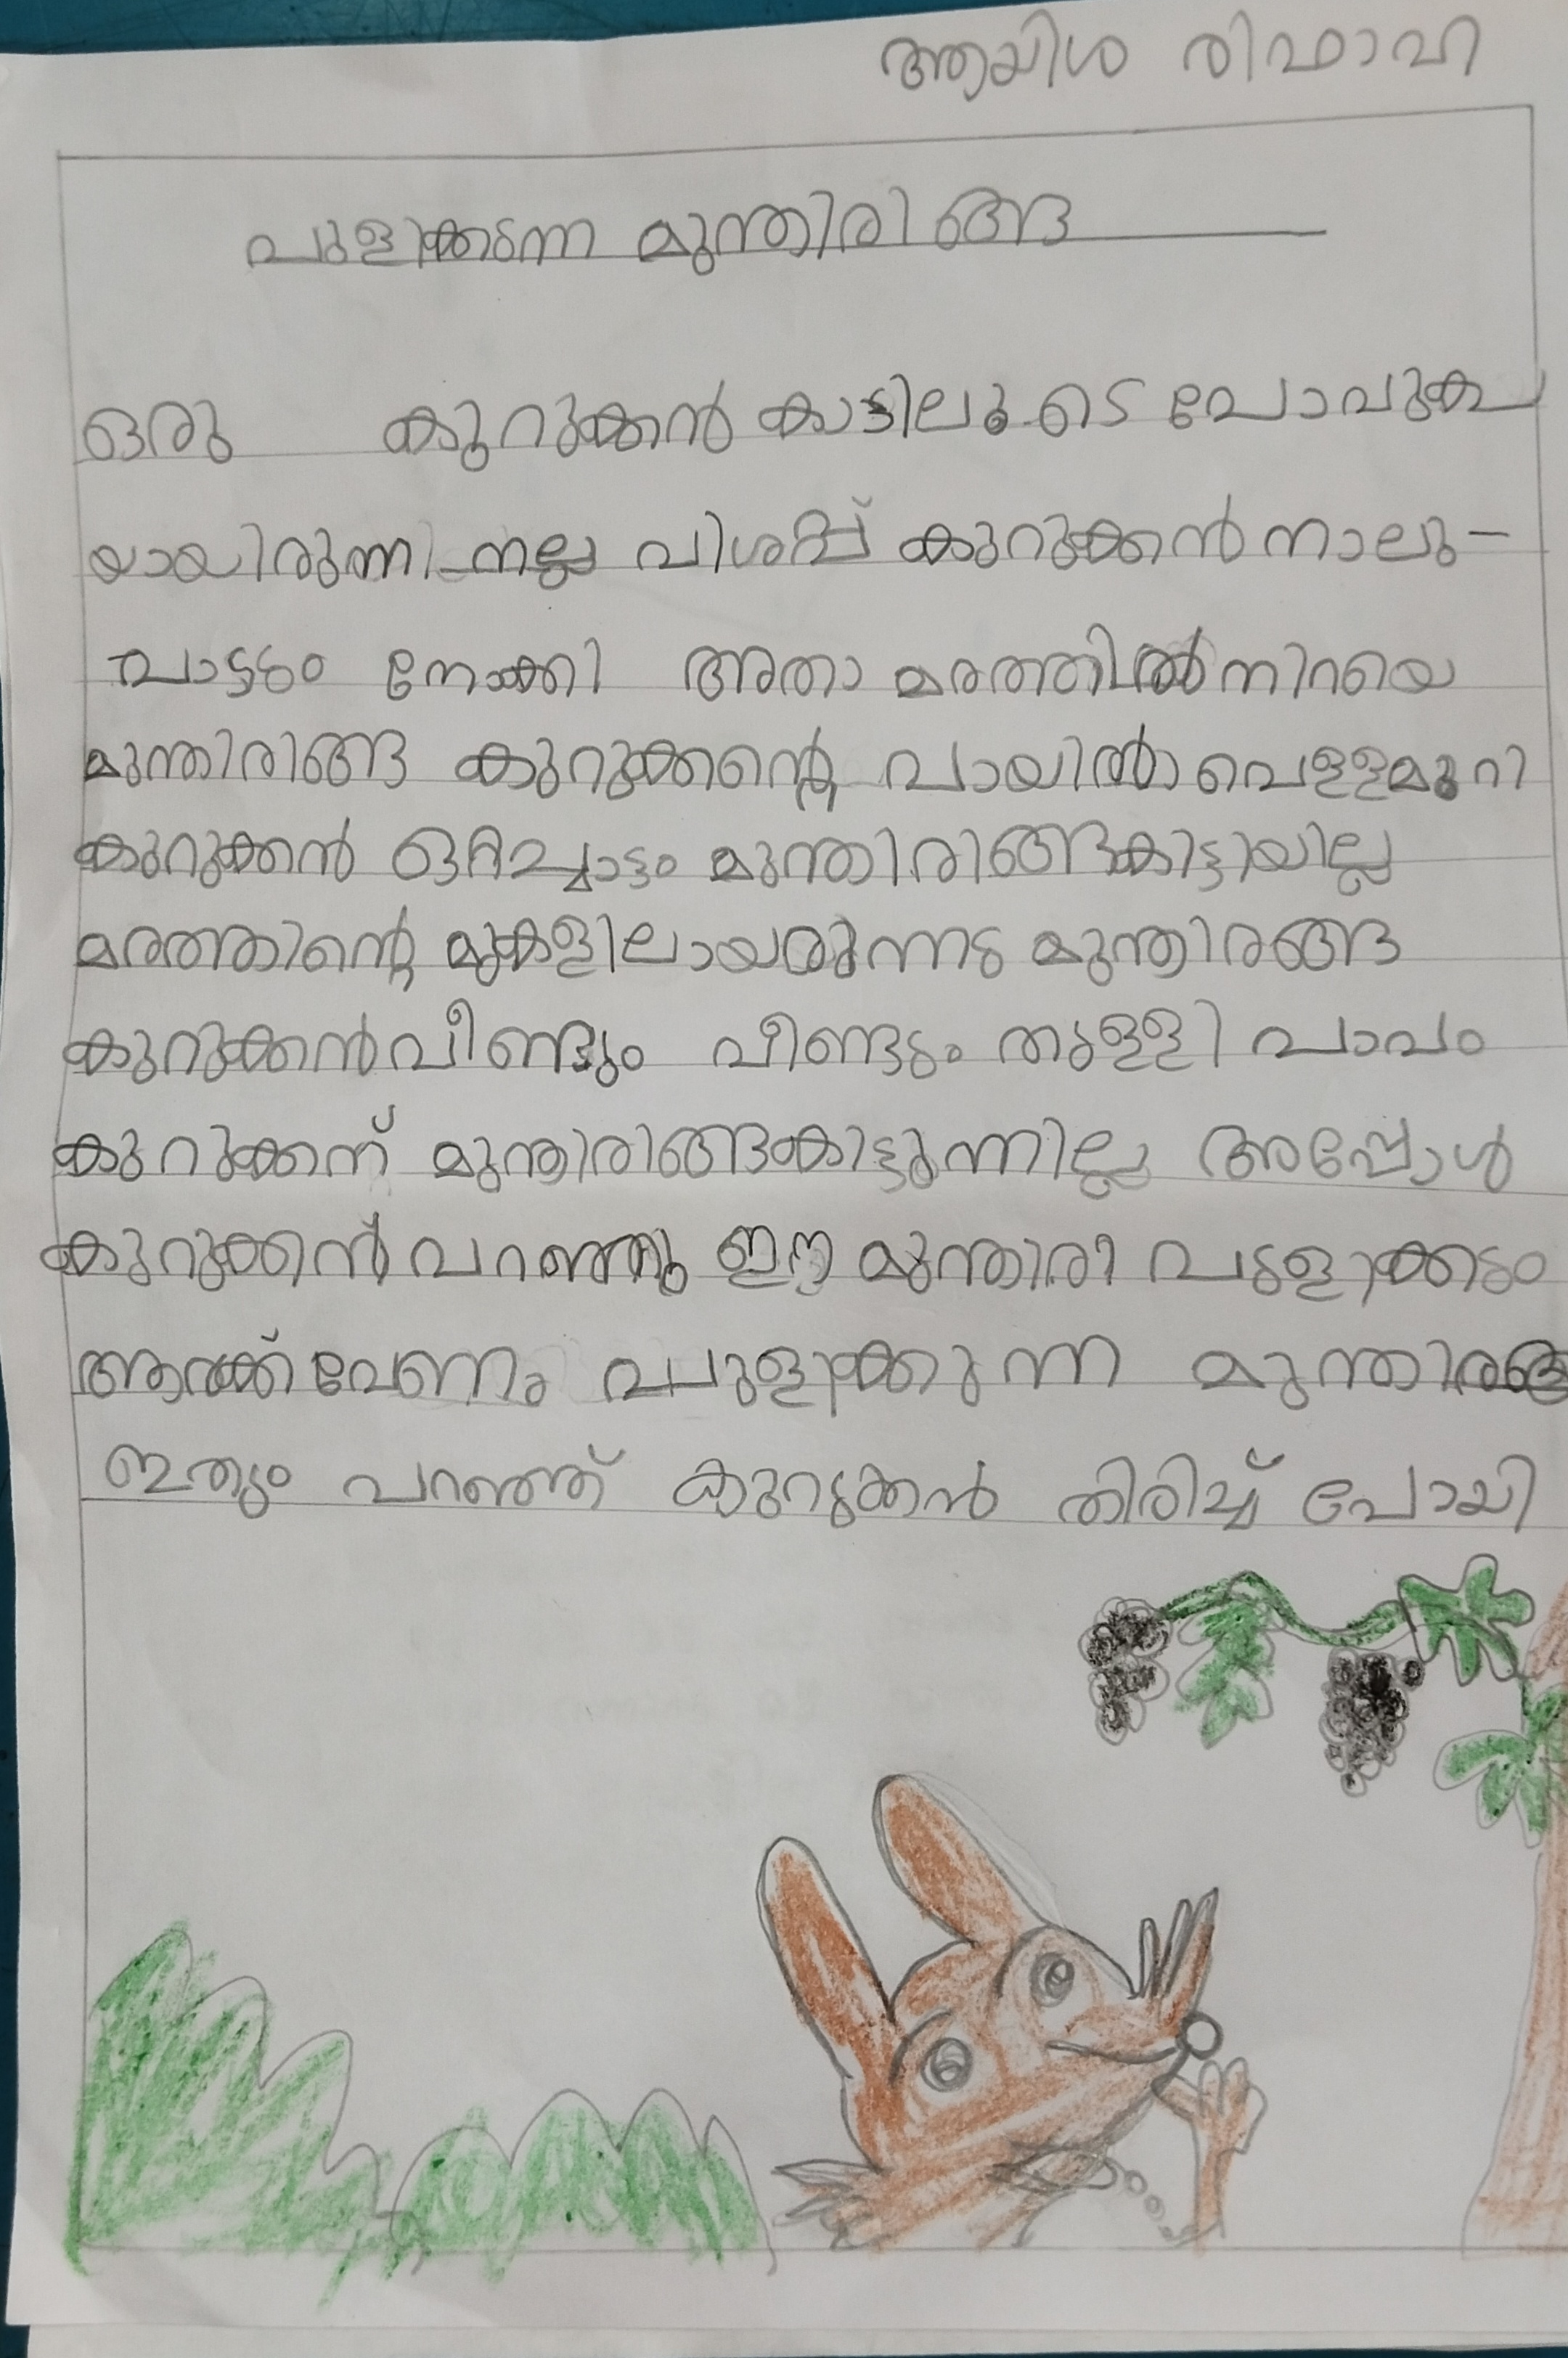 ആയിശ രിഫാവി
പുളിക്കുന്ന മുന്തിരിങ്ങ
ഒരു കുറുക്കൻ കാട്ടിലൂടെ പോവുക
യായിരുന്നു നല്ല വിശപ്പ് കുറുക്കൻ നാലു-
പാട്ടും നോക്കി അതാ മരത്തിൽ നിറയെ
മുന്തിരിങ്ങ കുറുക്കന്റെ വായിൽ വെള്ളമൂറി
കുറുക്കൻ ഒറ്റച്ചാട്ടം മുന്തിരിങ്ങകിട്ടിയില്ല
മരത്തിന്റെ മുകളിലായരുന്നു മുന്തിരങ്ങ
കുറുക്കൻ വീണ്ടും വീണ്ടും തുള്ളി പാവം
കുറുക്കന് മുന്തിരിങ്ങകിട്ടുന്നില്ല അപ്പോൾ
കുറുക്കൻ പറഞ്ഞു ഈ മുന്തിരി പുളിക്കും
ആർക്ക് വേണം പുളിക്കുന്ന മുന്തിരങ്ങ
ഇതും പറഞ്ഞ് കുറുക്കൻ തിരിച്ച് പോയി